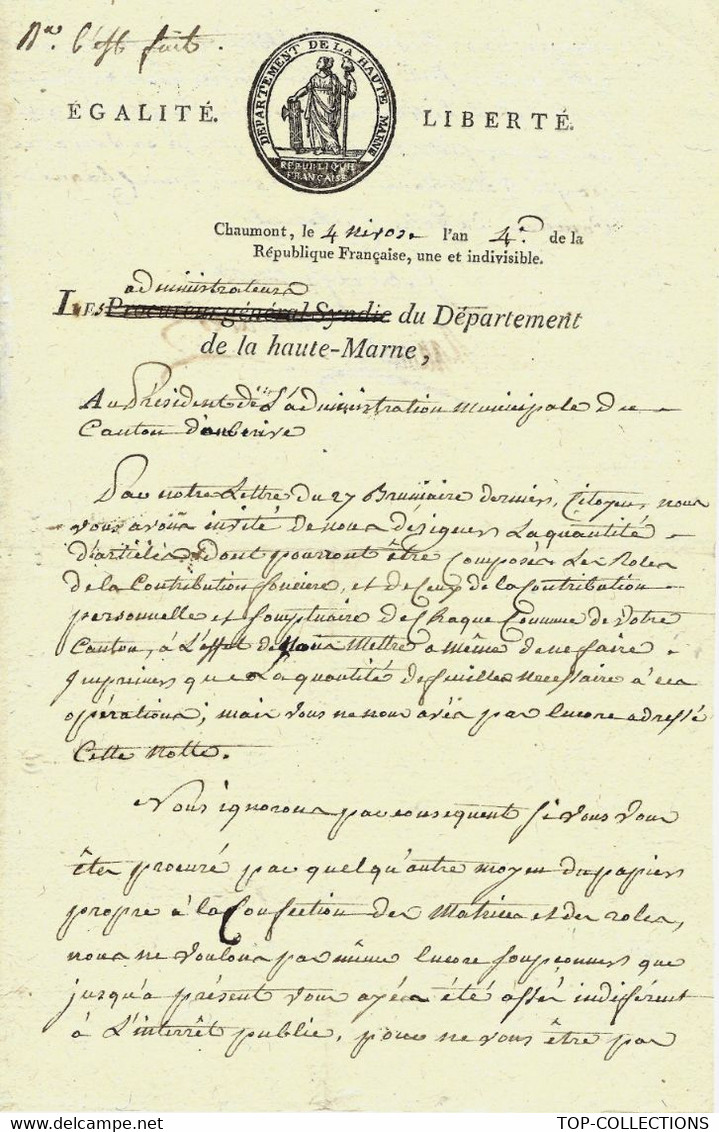 l'est fait.
DÉPARTEMENT DE LA HAUTE MARNE
RÉPUBLIQUE
FRANÇAISE
ÉGALITÉ.
LIBERTÉ.
Chaumont, le 4 nivose l'an 4.e de la
République Française, une et indivisible.
administrateurs
LES Procureur-général-Syndic du Département
de la haute-Marne,
Au Président de L'administration Municipale du
Canton d'auberive
Par notre Lettre du 27 Brumaire dernier, Citoyen, nous
vous avons invité de nous désigner La quantité
d'articles dont pourront être Composés Les Roles
de la Contribution fonciere, et de Ceux de la Contribution
personnelle et somptuaire de Chaque Commune de Votre
Canton, à L'effet de Nous Mettre a même de ne faire
Imprimer que La quantité de feuilles necessaire à ces
opérations; mais vous ne nous avés pas Encore adressé
Cette Notte.
Nous ignorons par consequent si vous vous
êtes procuré par quelqu'autre moyen du papier
propre à la Confection des Matrices et des roles,
nous ne voulons pas même Encore soupçonner que
jusqu'a présent vous ayés été assé indiférent
à L'interrêt public, pour ne vous être pas
TOP-COLLECTIONS